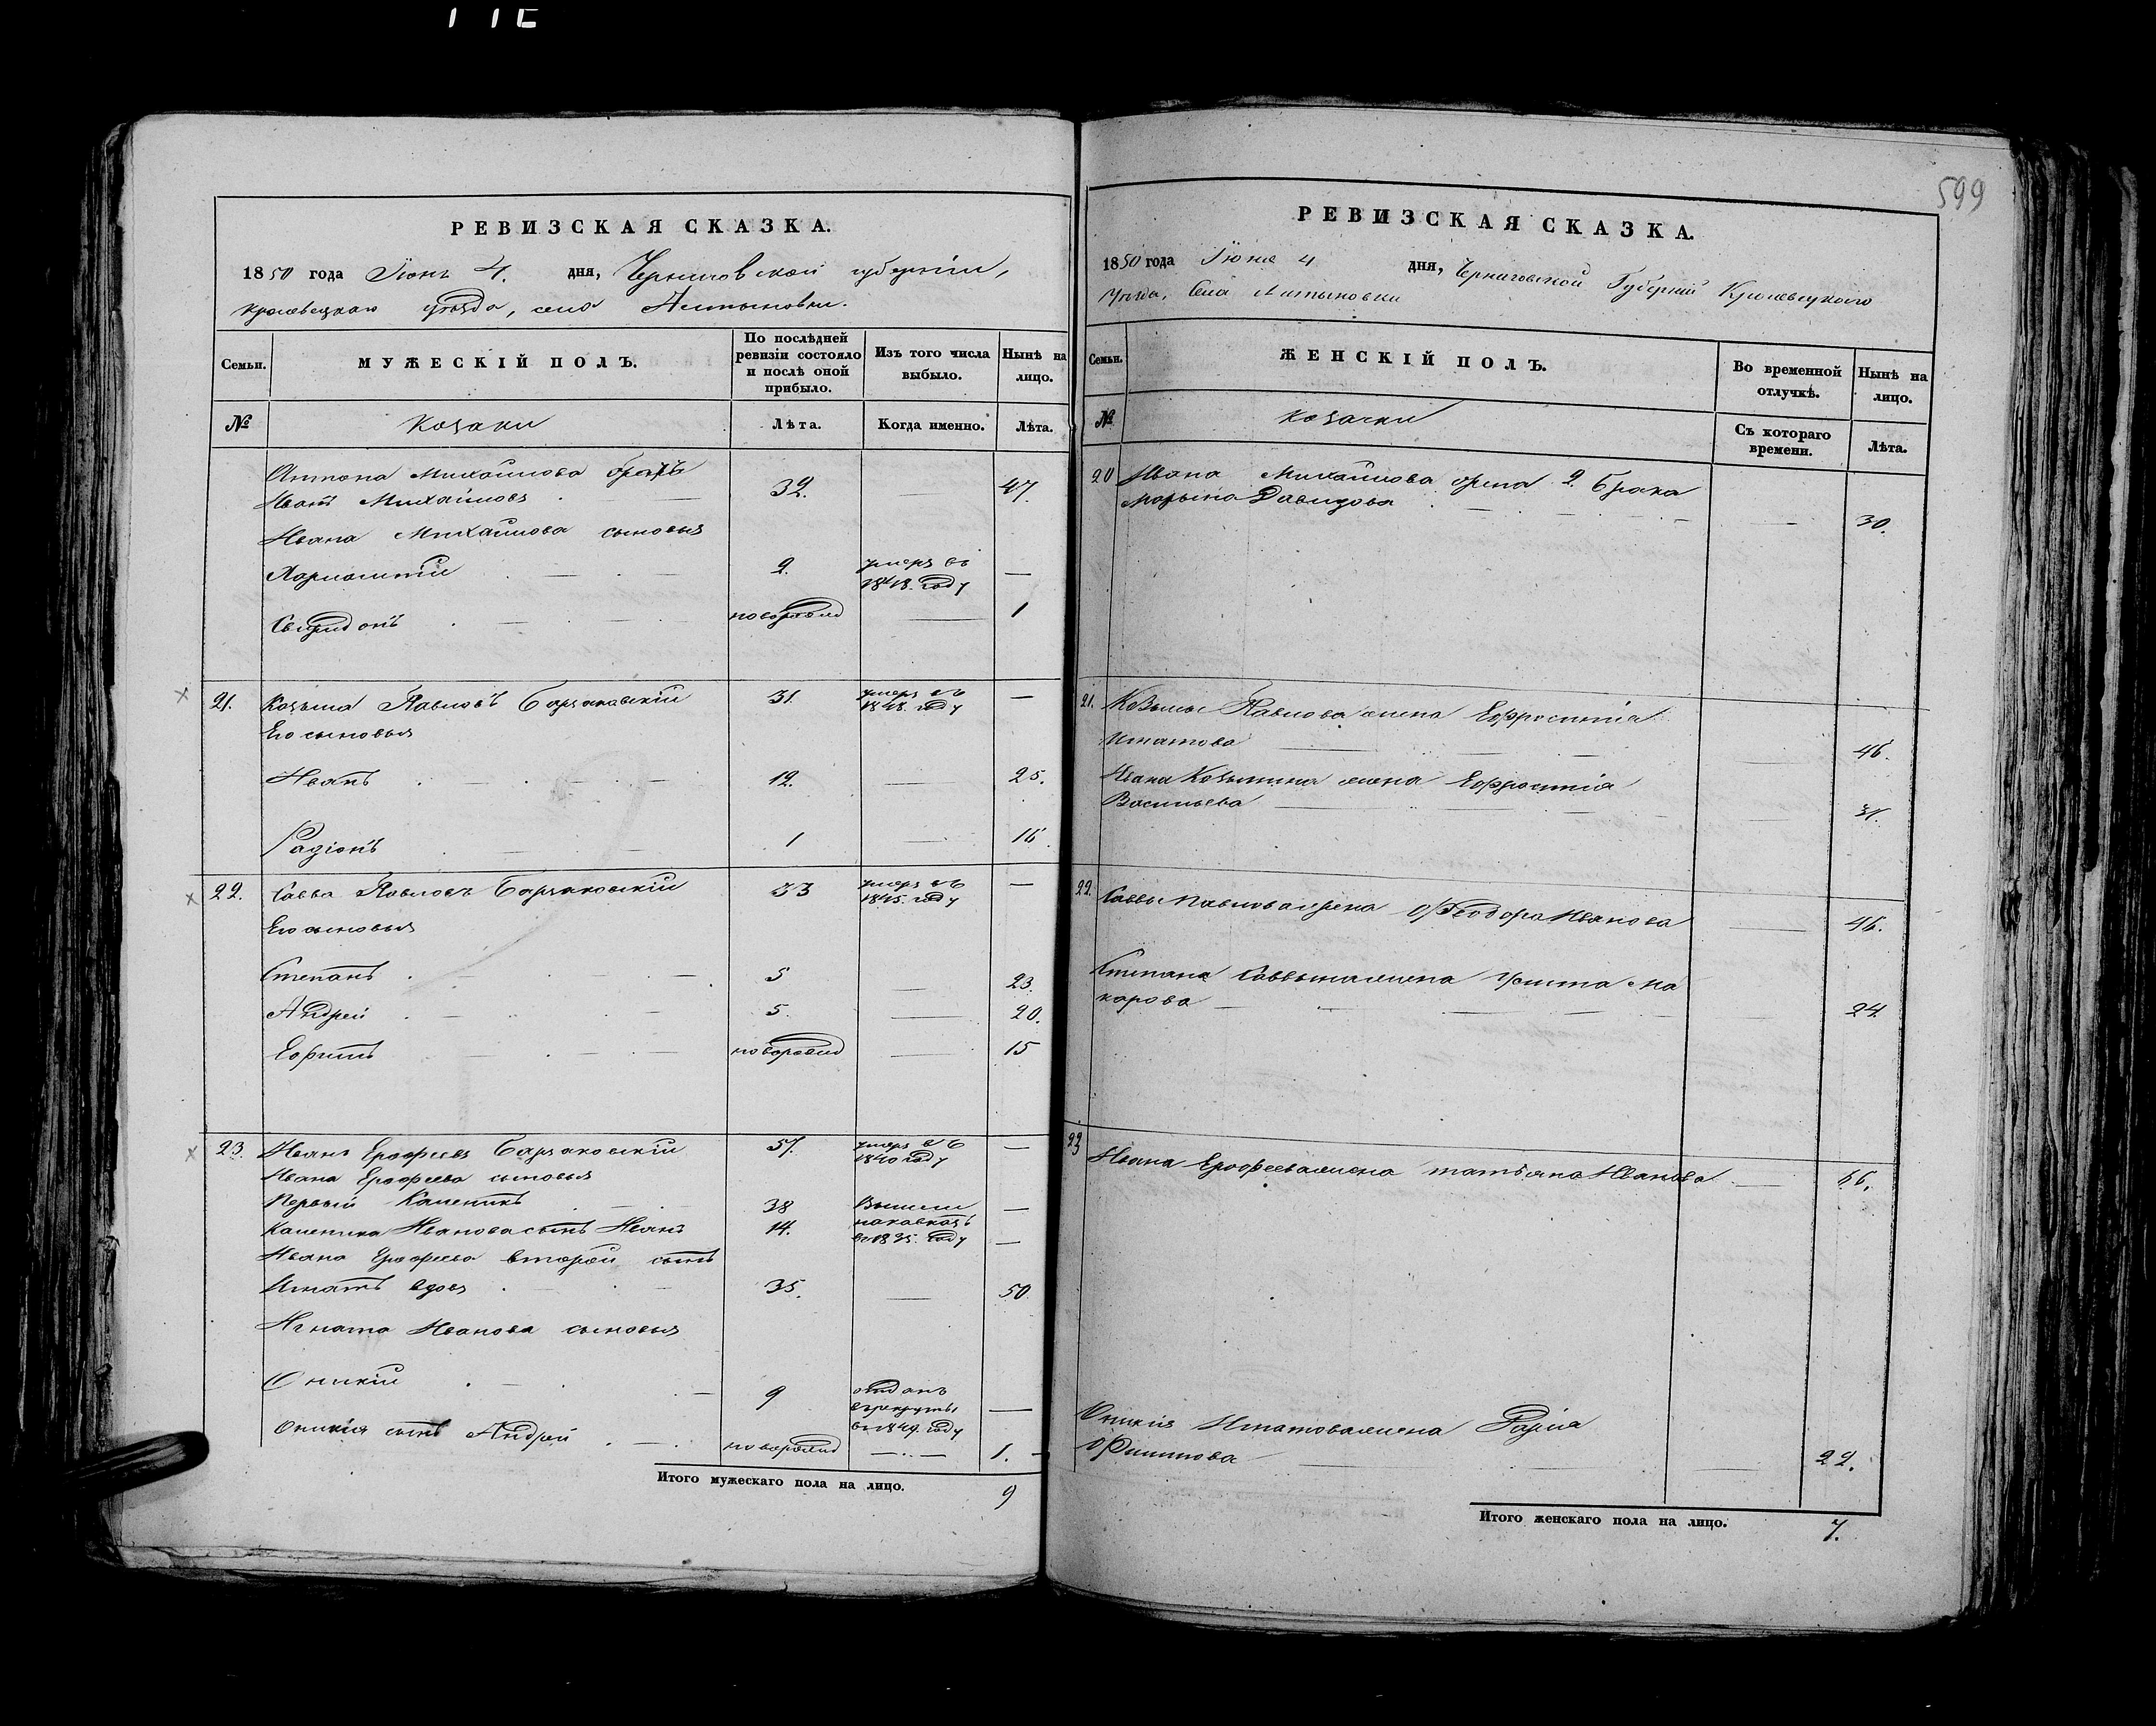 599
РЕВИЗСКАЯ СКАЗКА.
1850 года Іюня 4. дня, Черниговской губерніи,
кролевецкаго уѣзда, села Алтыновки.
Семьи.
МУЖЕСКІЙ ПОЛЪ.
По послѣдней ревизіи состояло и послѣ оной прибыло.
Изъ того числа выбыло.
Нынѣ на лицо.
№
Козаки
Лѣта.
Когда именно.
Лѣта.
Антона Михайлова братъ
Иванъ Михайловъ 32. 47.
Ивана Михайлова сыновья
2. умеръ въ
1848. году —
Свиридонъ новорожд — 1
21. Козьма Павловъ умеръ въ
31. —
Его сыновья
Иванъ 12. — 25.
Радіонъ 1 — 16.
22. Савва Павловъ умеръ въ
33 1845. году —
Его сыновья
Степанъ 5 — 23.
Андрей 5. — 20.
Ефимъ новорожд — 15
23. Иванъ Ерофеевъ 57. умеръ въ
1840 году —
Ивана Ерофеева сыновья
Первый Каленикъ 38 —
Каленика Иванова сынъ Иванъ 14.
въ 1835. году —
Ивана Ерофеева второй сынъ
Игнатъ вдовъ 35. — 50
Игната Иванова сыновья
Оникій 9 отданъ
в рекруты
въ 1849. году —
Оникія сынъ Андрей новорожд — 1.
Итого мужескаго пола на лицо. 9
РЕВИЗСКАЯ СКАЗКА.
1850 года Іюня 4 дня, Черниговской Губерніи Кролевецкого
уѣзда, Села Алтыновки
Семьи.
ЖЕНСКІЙ ПОЛЪ.
Во временной отлучкѣ.
Нынѣ на лицо.
№
Козачки
Съ котораго времени.
Лѣта.
20 Ивана Михайлова жена 2. брака
Марьина Давидова — 30.
21. Козьмы Павлова жена Ефросинія
Игнатова — 46.
Ивана Козьмина жена Ефросинія
Васильева —
22. Саввы Павлова жена Феодора Иванова — 46.
Степана Саввина жена Улита Ма
карова — 24.
23 Ивана Ерофеева жена Татьяна Иванова — 66.
Оникія Игнатова жена
Филипова — 22.
Итого женскаго пола на лицо. 7.